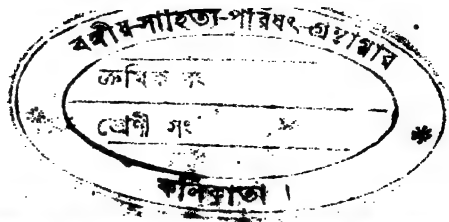 বঙ্গীয়-সাহিত্য-পরিষৎ-গ্রন্থাগার
ক্রমিক নং
শ্রেণী সং
কলিকাতা ।